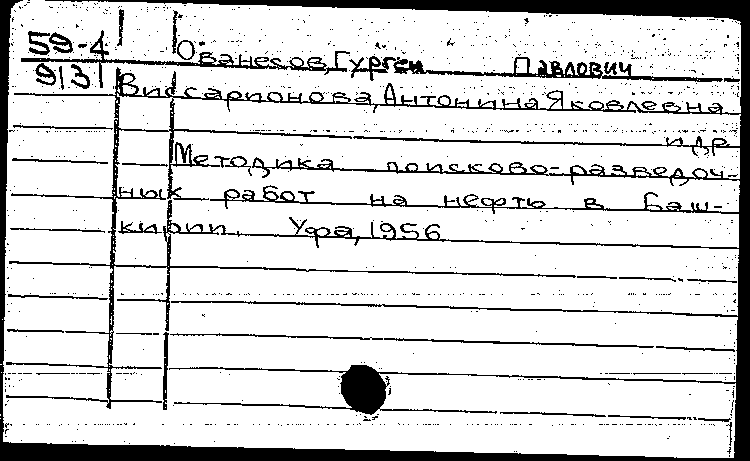 59-4 Ованесов, Гурген Павлович
9131 Виссарионова, Антонина Яковлевна
и др
Методика поисково-разведоч-
ных работ на нефть в Баш-
кирии. Уфа, 1956